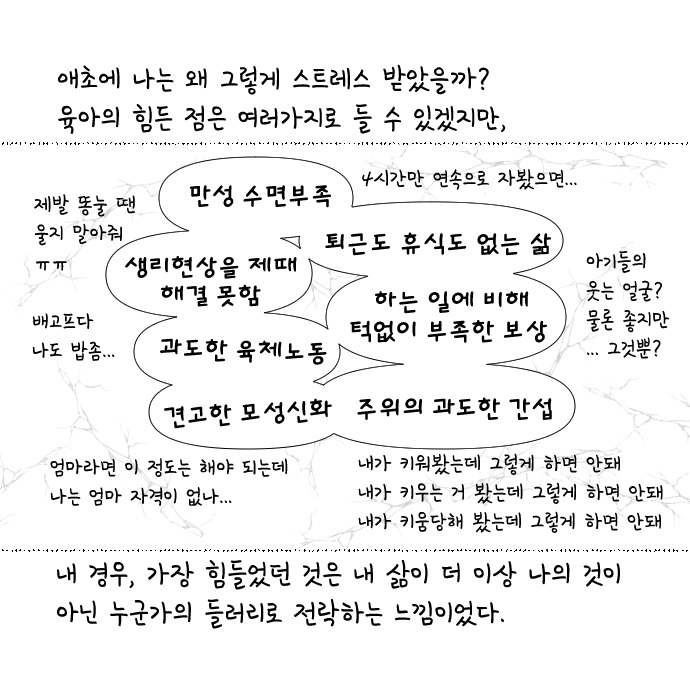 애초에 나는 왜 그렇게 스트레스 받았을까?
육아의 힘든 점은 여러가지로 들 수 있겠지만,
만성 수면부족
4시간만 연속으로 자봤으면...
제발 똥눌 땐
울지 말아줘
ㅠㅠ
퇴근도 휴식도 없는 삶
생리현상을 제때
해결 못함
아기들의
웃는 얼굴?
물론 좋지만
... 그것뿐?
하는 일에 비해
턱없이 부족한 보상
배고프다
나도 밥좀...
과도한 육체노동
견고한 모성신화
주위의 과도한 간섭
엄마라면 이 정도는 해야 되는데
나는 엄마 자격이 없나...
내가 키워봤는데 그렇게 하면 안돼
내가 키우는 거 봤는데 그렇게 하면 안돼
내가 키움당해 봤는데 그렇게 하면 안돼
내 경우, 가장 힘들었던 것은 내 삶이 더 이상 나의 것이
아닌 누군가의 들러리로 전락하는 느낌이었다.